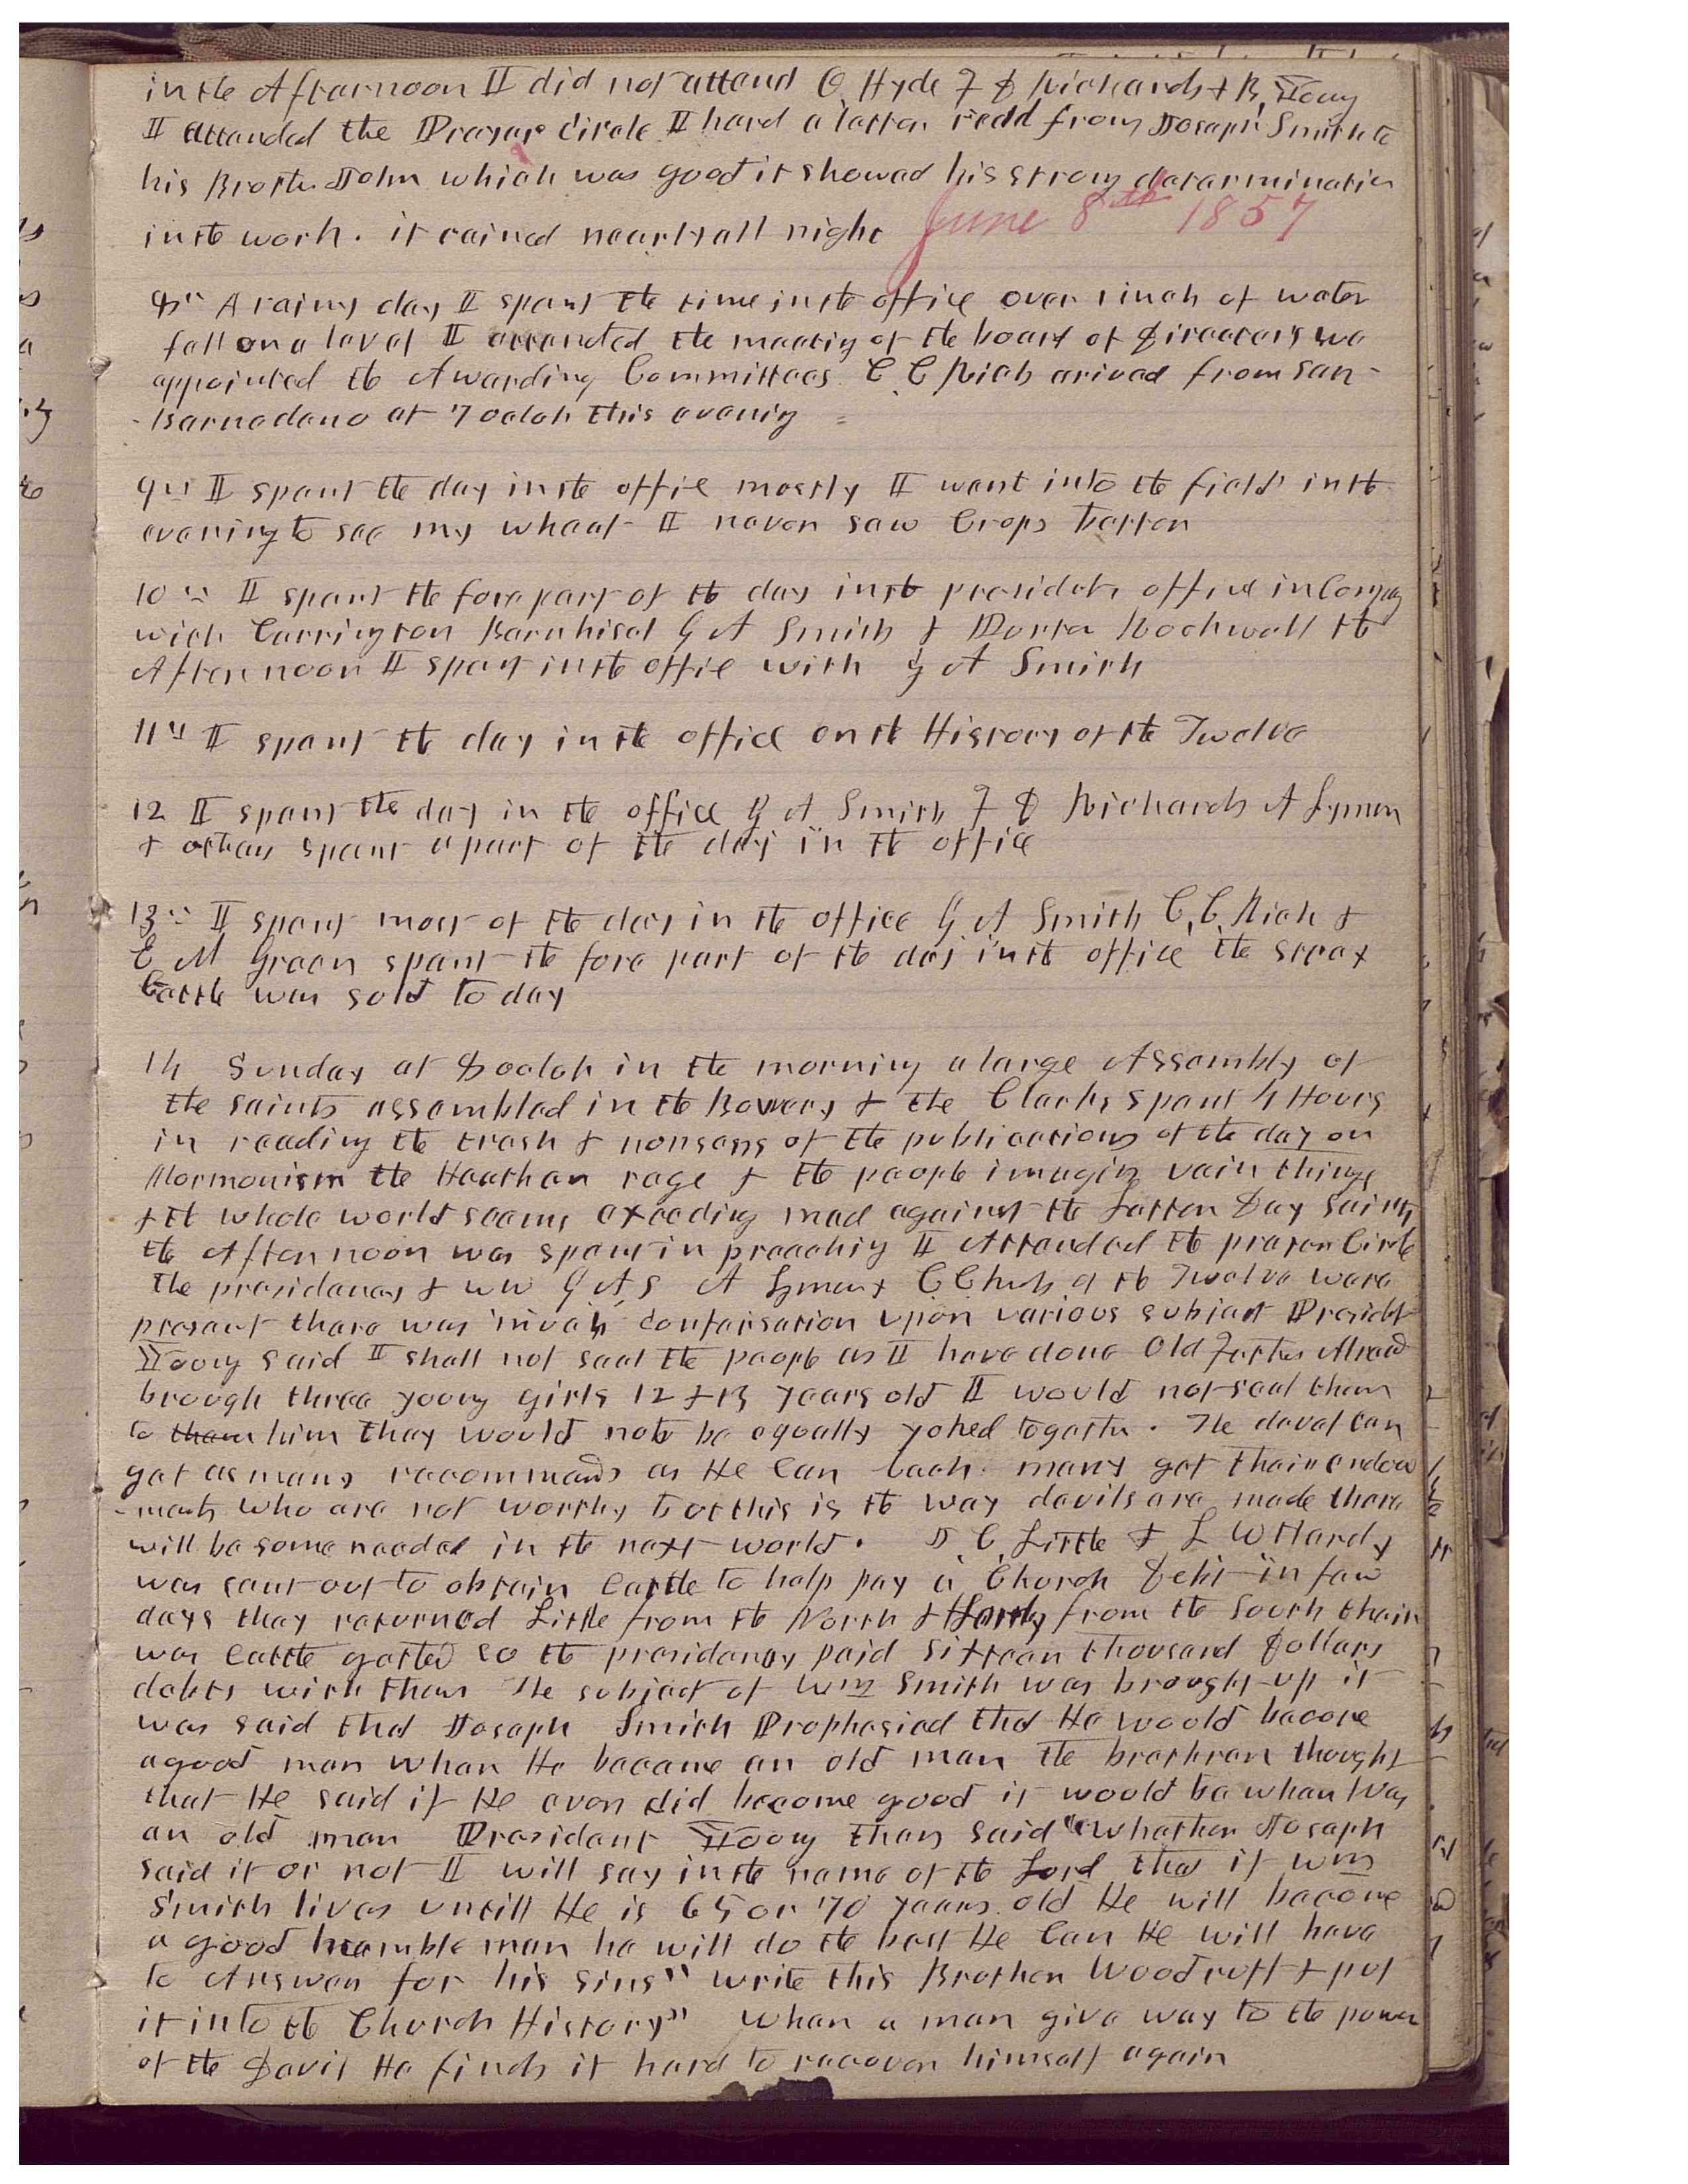 in the Afternoon I did not attend O Hyde F D Richards & B, Young
I attended the Prayer Circle I hard a letter redd from Joseph Smith to
his Brother John which was good it showed his strong determination
in the work. it rained nearly all night June 8th 1857
8th A rainy day I spent the time in the office over 1 inch of water
fell on a level I attended the meeting of the board of Directors we
appointed the Awarding Committees C. C Rich arived from San-
-Barnadano at 7 oclok this evening
9th I spent the day in the offie mostly I went into the field in the
evening to see my wheat I never saw Crops better
10th I spent the forepart of the day in the presidets office in Compny
with Carrington Barnhisel G A Smith & Porter Rockwell the
Afternoon I spent in the offie with G A Smith
11th I spent the day in the office on the History of the Twelve
12 I spent the day in the office G A Smith F D Richards A Lyman
& others spent a part of the day in the office
13th I spent most of the day in the office G A Smith C, C, Rich &
E M Green spent the fore part of the day in the office the stray
Cattle was sold to day
14 Sunday at 8 oclok in the morning a large Assembly of
the saints assembled in the Bowery & the Clerks spent 4 Hours
in reading the trash & nonsens of the publications of the day on
Mormonism the Heathen rage & the people imagin vain things
& the whole world seems exceeding mad against the Latter Day Saints
the Afternoon was spent in preaching I Attended the prayer Circle
the presidency & WW G A S A Lyman & C C Rich of the Twelve were
present there was much conversation upon various subject Presidet
Young said I shall not seal the people as I have done Old Father Alread
brough three young girls 12 & 13 years old I would not seal them
to them him they would not be equally yoked together. The devel can
get as many recommends as He can back. many get their endow
-ments who are not worthy but this is the way devils are made there
will be some needed in the next world. J, C, Little & L W Hardy
was sent out to obtain Cattle to help pay a Church Debt in few
days they returned Little from the North & Hardy from the South their
was cattle gotted so the presidency paid sixteen thousand Dollars
debts with them The subject of Wm Smith was brought up it
was said that Joseph Smith Prophesied that He would become
a good man when He became an old man the brethren thought
that He said if He ever did become good it would be when Was
an old man President Young then said "whether Joseph
said it or not I will say in the name of the Lord that if Wm
Smith lives untill He is 65 or 70 years old He will become
a good humble man he will do the best He Can He will have
to Answer for his sins" write this Brother Woodruff & put
it into the Church History" When a man give way to the power
of the Devil He finds it hard to recover himself again